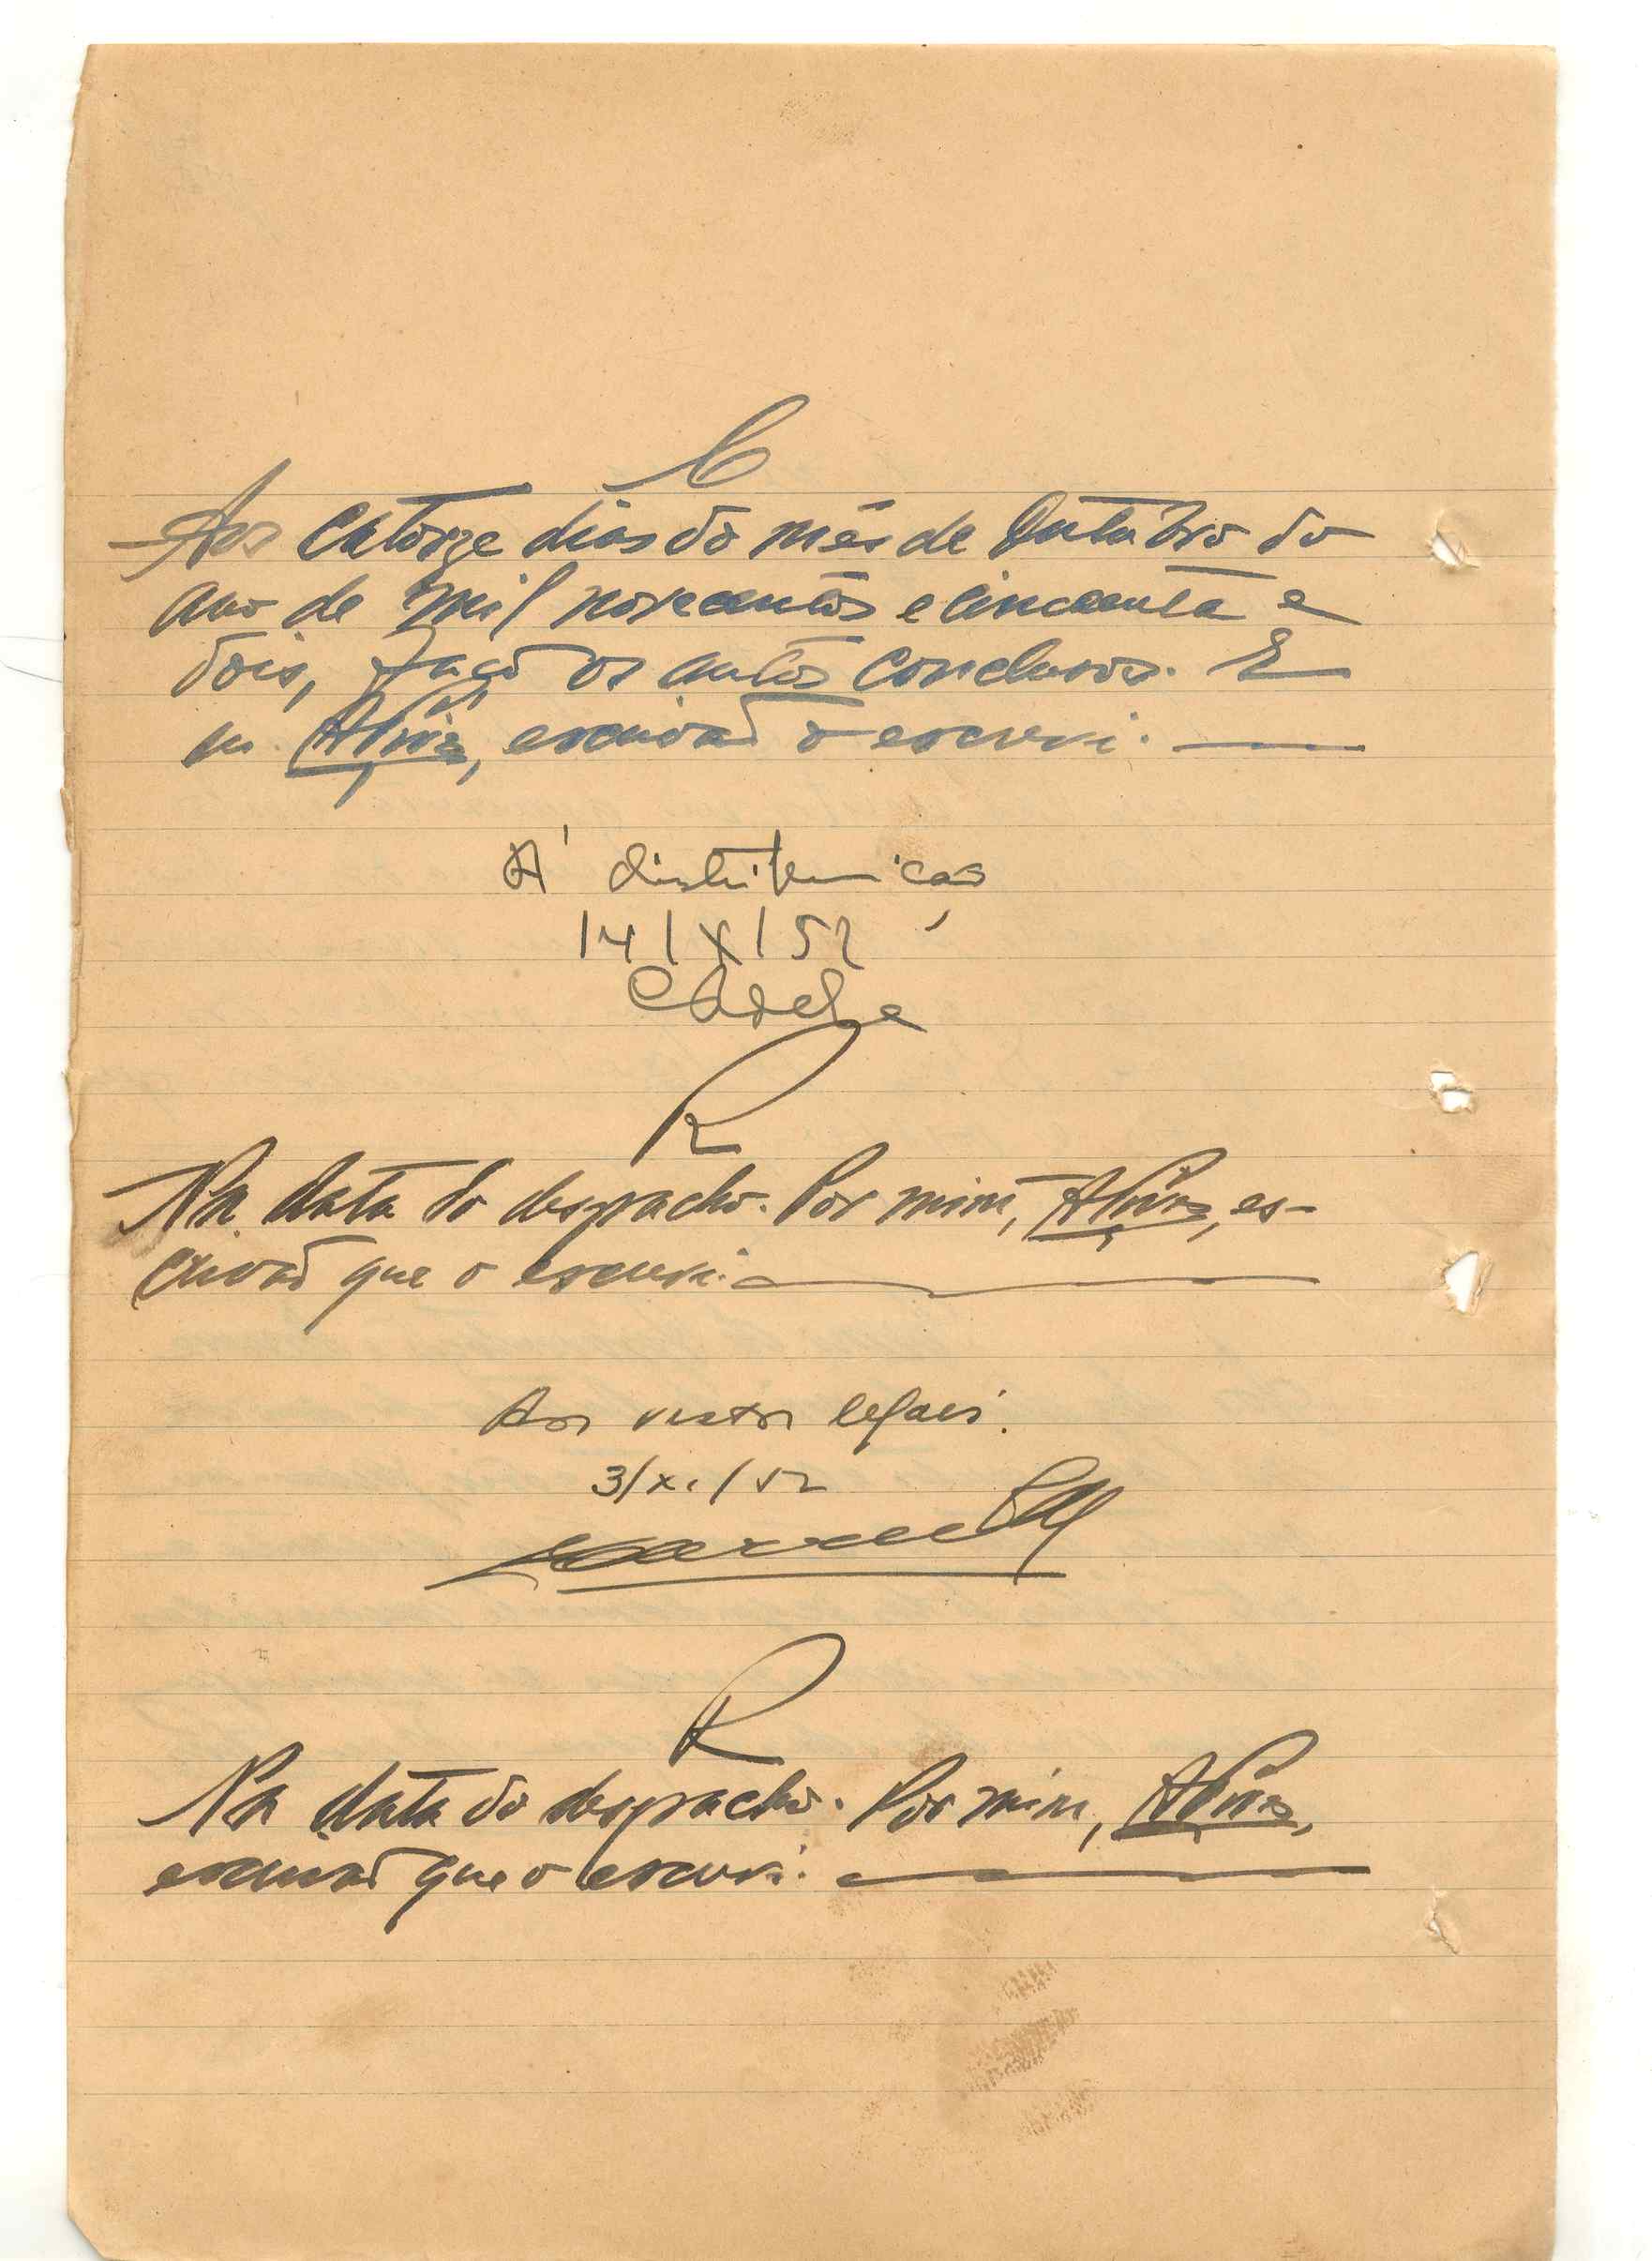 C
Aos catorze dias do mês de Outubro do
ano de mil novecentos e cincoenta e
dois, faço os autos conclusos. E
eu escrivão o escrevi.
A' distribuição
14/X/52
R
Na data do despacho. Por mim, es-
crivão que o escrevi.
Aos vistos legais.
3/XI/52
R
Na data do despacho. Por mim,
escrivão que o escrevi.